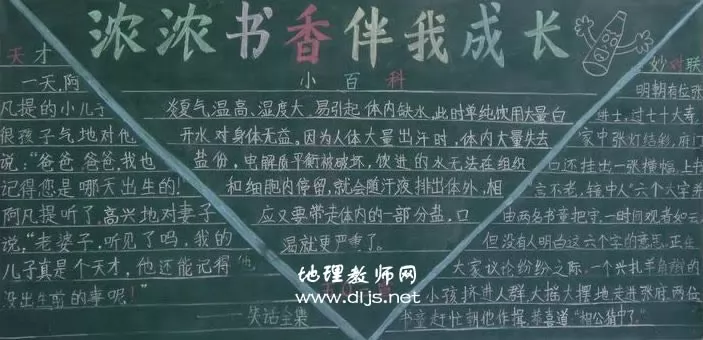 浓浓书香伴我成长
天才
一天，阿
凡提的小儿子
很孩子气地对他
说："爸爸，爸爸，我也
记得您是哪天出生的！"
阿凡提听了，高兴地对妻子
说，"老婆子，听见了吗，我的
儿子真是个天才，他还能记得他
没出生前的事呢！"
——笑话全集
小百科
炎夏气温高、湿度大，易引起体内缺水，此时单纯饮用大量白
开水对身体无益。因为人体大量出汗时，体内大量失去
盐份，电解质平衡被破坏，饮进的水无法在组织
和细胞内停留，就会随汗液排出体外，相
应又要带走体内的一部分盐，口
渴就更严重了。
妙对联
明朝有位张
进士，过七十大寿，
家中张灯结彩，府门
口还挂出一张横幅，上书
言不老，辖中人"六个大字并
由两名书童把守，一时间观者如云，
但没有人明白这六个字的意思。正在
大家议论纷纷之际，一个扎羊角辫的
小孩挤进人群，大摇大摆地走进张府，两位
书童赶忙朝他作揖，恭喜道"相公猜中了。"
地理教师网
www.dljs.net